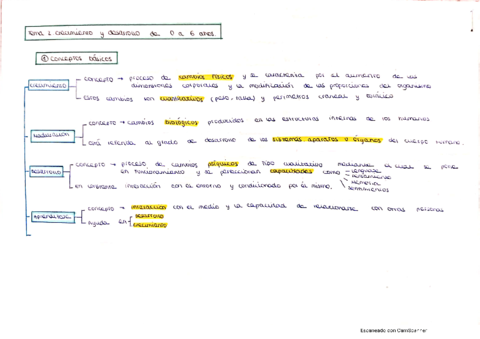 Tema 2. Crecimiento y desarrollo de 0 a 6 años.
① CONCEPTOS BÁSICOS
Crecimiento
concepto → proceso de cambios físicos y se caracteriza por el aumento de las
dimensiones corporales y la modificación de las proporciones del organismo
Estos cambios son cuantitativos (peso, talla) y perímetros craneal y torácico
Maduración
concepto → cambios biológicos producidos en las estructuras internas de los humanos
está referida al grado de desarrollo de los sistemas, aparatos o órganos del cuerpo humano.
Desarrollo
concepto → proceso de cambios psíquicos de tipo cualitativo mediante el cual se pone
en funcionamiento y se perfeccionan capacidades como
lenguaje
pensamiento
memoria
sentimientos
en constante interacción con el entorno y condicionado por el mismo.
Aprendizaje
concepto → interacción con el medio y la capacidad de relacionarse con otras personas
Ayuda en
desarrollo
crecimiento
Escaneado con CamScanner